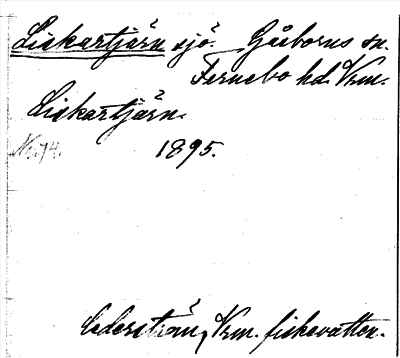 Liskartjärn sjö. Gåsborns sn.
Fernebo hd. Vrm.
Liskartjärn.
1895.
Cederström, Vrm. fiskevatten.